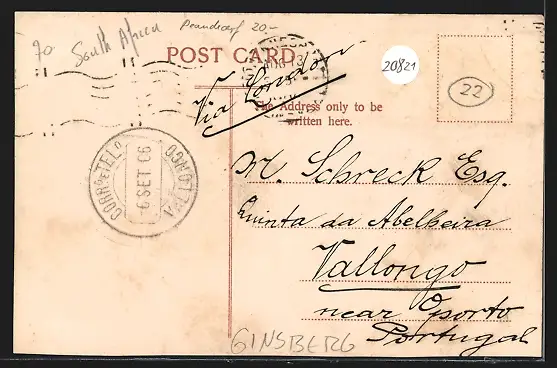 70 South Africa 20-
POST CARD
20821
22
Via London
The Address only to be
written here.
CORR.º E TEL.º
6 SET 06
VALLONGO
M. Schreck Esq.
Quinta da Abelheira
Vallongo
near Oporto
Portugal
GINSBERG